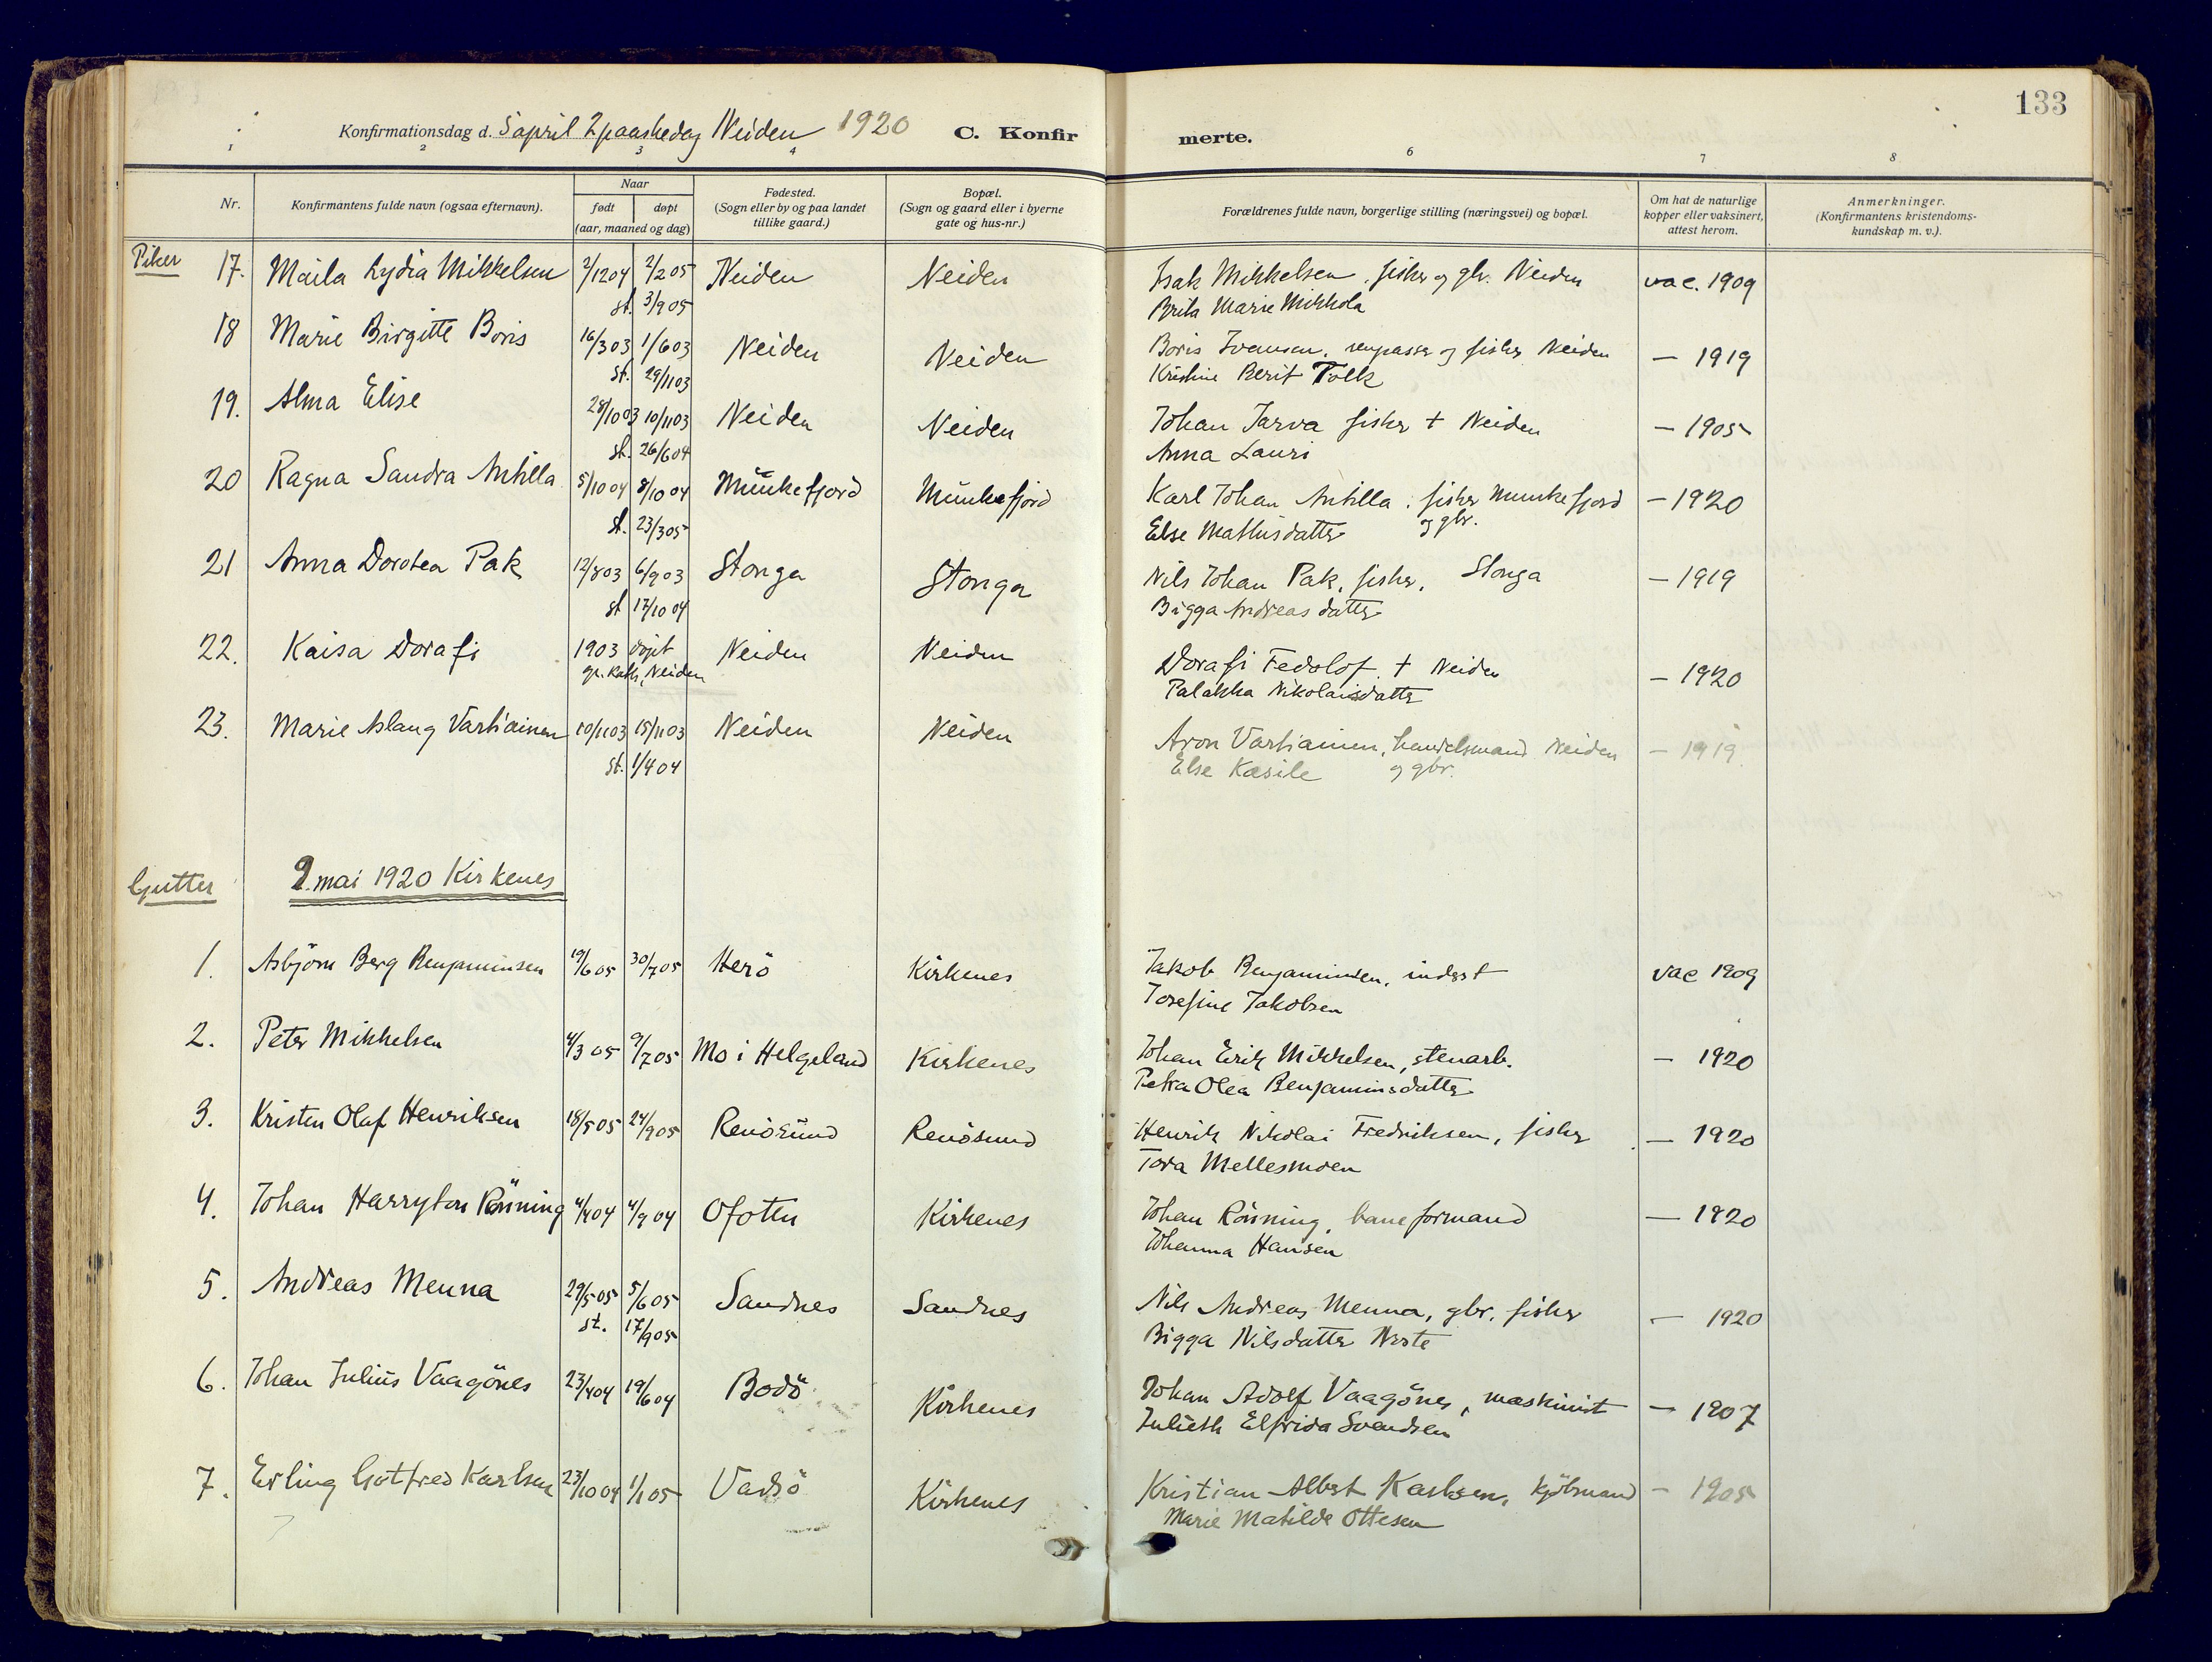 133
Konfirmationsdag d. 5 april 2 paaskedag Neiden 1920 C. Konfirmerte.
1 2 3 4 6 7 8
Nr. Konfirmantens fulde navn (ogsaa efternavn). Naar født døpt (aar, maaned og dag) Fødested. (Sogn eller by og paa landet tillike gaard.) Bopæl. (Sogn og gaard eller i byerne gate og hus-nr.) Forældrenes fulde navn, borgerlige stilling (næringsvei) og bopæl. Om hat de naturlige kopper eller vaksinert, attest herom. Anmerkninger. (Konfirmantens kristendoms-kundskap m. v.).
Piker 17. Maila Lydia Mikkelsen 2/12 04 2/2 05 Neiden Neiden Isak Mikkelsen. fisker og gbr. Neiden vac. 1909
st. 3/9 05 Brita Marie Mikkola
18 Marie Birgitte Boris 16/3 03 1/6 03 Neiden Neiden Boris Ivansen. renpasser og fisker Neiden — 1919
st. 29/11 03 Kristine Berit Tolk
19. Alma Elise 28/10 03 10/11 03 Neiden Neiden Johan Jarva fisker † Neiden — 1905
st. 26/6 04 Anna Lauri
20 Ragna Sandra Antilla 5/10 04 8/10 04 Munkefjord Munkefjord Karl Johan Antilla. fisker Munkefjord — 1920
st. 23/3 05 Else Mathisdatter og gbr.
21 Anna Dorotea Pak 12/8 03 6/9 03 Stonga Stonga Nils Johan Pak, fisker. Stonga — 1919
st 17/10 04 Bigga Andreasdatter
22. Kaisa Dorafi 1903 döpt Neiden Neiden Dorafi Fedolof. † Neiden — 1920
gr. kath, Neiden Palakka Nikolaisdatter
23. Marie Aslaug Vartiainen 10/11 03 15/11 03 Neiden Neiden Aron Vartiainen, handelsmand Neiden — 1919.
st. 1/4 04 Else Kasile og gbr.
Gutter 2. mai 1920 Kirkenes
1. Asbjörn Berg Benjaminsen 19/6 05 30/7 05 Herö Kirkenes Jakob Benjaminsen, inderst vac 1909
Josefine Jakobsen
2. Peter Mikkelsen 4/3 05 9/7 05 Mo i Helgeland Kirkenes Johan Erik Mikkelsen, stenarb. — 1920
Petra Olea Benjaminsdatter
3. Kristen Olaf Henriksen 18/5 05 24/9 05 Renösund Renösund Henrik Nikolai Fredriksen, fisker — 1920
Tora Mellesmoen
4. Johan Harryton Rönning 4/4 04 4/9 04 Ofoten Kirkenes Johan Rönning, baneformand — 1920
Johanna Hansen
5. Andreas Menna 29/5 05 5/6 05 Sandnes Sandnes Nils Andreas Menna, gbr. fisker — 1920
st. 17/9 05 Bigga Nilsdatter Neste
6. Johan Julius Vaagönes 23/4 04 19/6 04 Bodö Kirkenes Johan Adolf Vaagönes, maskinist — 1907
Julieth Elfrida Svendsen
7. Erling Gotfred Karlsen 23/10 04 1/1 05 Vadsö Kirkenes Kristian Albert Karlsen, kjöbmand — 1905
Marie Matilde Ottesen